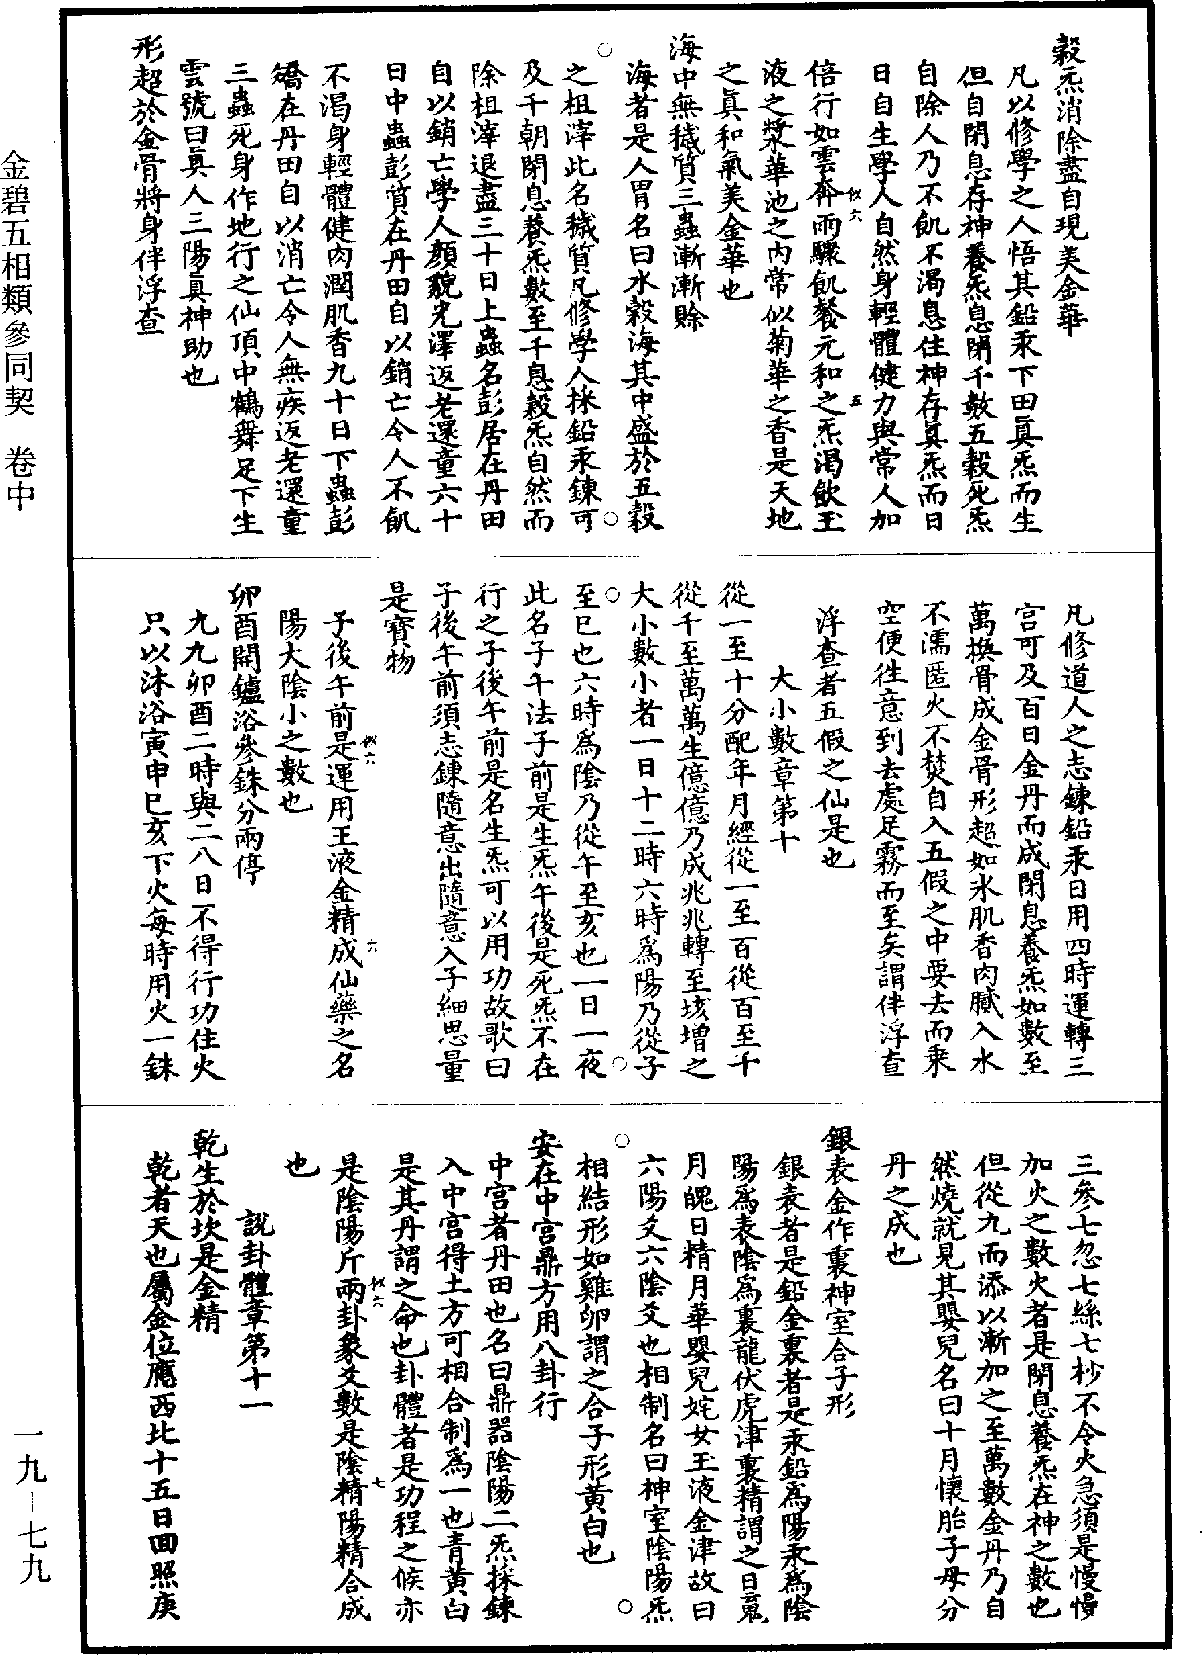 穀炁消除盡自現美金華
凡以修學之人悟其鉛汞下田眞炁而生
但自閉息存神養炁息閉千數五穀死炁
自除人乃不飢不渴息住神存眞炁而日
日自生學人自然身輕體健力與常人加
倍行如雲奔雨驟飢餐元和之炁渴飲玉
液之漿華池之內常似菊華之香是天地
之眞和氣美金華也
海中無穢質三蟲漸漸賒
海者是人胃名曰水穀海其中盛於五穀
之柤滓此名穢質凡修學人採鉛汞鍊可
及千朝閉息養炁數至千息穀炁自然而
除柤滓退盡三十日上蟲名彭居在丹田
自以銷亡學人顏貌光澤返老還童六十
日中蟲彭質在丹田自以銷亡令人不飢
不渴身輕體健肉潤肌香九十日下蟲彭
矯在丹田自以消亡令人無疾返老還童
三蟲死身作地行之仙頂中鶴舞足下生
雲號曰眞人三陽眞神助也
形超於金骨將身伴浮查
凡修道人之志鍊鉛汞日用四時運轉三
宮可及百日金丹而成閉息養炁如數至
萬換骨成金骨形超如氷肌香肉膩入水
不濡匿火不焚自入五假之中要去而乗
空便徃意到去處足霧而至矣謂伴浮查
浮查者五假之仙是也
大小數章第十
從一至十分配年月經從一至百從百至千
從千至萬萬生億億乃成兆兆轉至垓增之
大小數小者一日十二時六時爲陽乃從子
至巳也六時爲陰乃從午至亥也一日一夜
此名子午法子前是生炁午後是死炁不在
行之子後午前是名生炁可以用功故歌曰
子後午前須志鍊隨意出隨意入子細思量
是寳物
子後午前是運用玉液金精成仙藥之名
陽大陰小之數也
卯酉開鑪浴參銖分兩停
九九卯酉二時與二八日不得行功住火
只以沐浴寅申巳亥下火每時用火一銖
三參七忽七絲七杪不令火急須是慢慢
加火之數火者是閉息養炁在神之數也
但從九而添以漸加之至萬數金丹乃自
然燒就見其嬰兒名曰十月懷胎子母分
丹之成也
銀表金作裏神室合子形
銀表者是鉛金裏者是汞鉛爲陽汞爲陰
陽爲表陰爲裏龍伏虎津裏精謂之日䰟
月魄日精月華嬰兒姹女玉液金津故曰
六陽爻六陰爻也相制名曰神室陰陽炁
相結形如雞卵謂之合子形黃白也
安在中宮鼎方用八卦行
中宮者丹田也名曰鼎器陰陽二炁採鍊
入中宮得土方可相合制爲一也青黃白
是其丹謂之命也卦體者是功程之候亦
是陰陽斤兩卦象爻數是陰精陽精合成
也
說卦體章第十一
乾生於坎是金精
乾者天也屬金位應西北十五日囬照庚
金碧五相類參同契　卷中
一九－七九